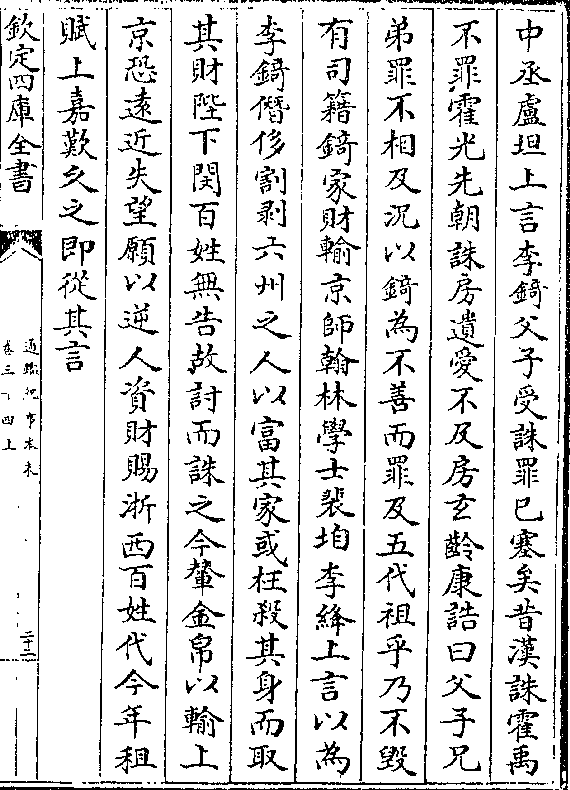 中丞盧坦上言李錡父子受誅罪已塞矣昔漢誅霍禹
不罪霍光先朝誅房遺愛不及房玄齡康誥曰父子兄
弟罪不相及況以錡為不善而罪及五代祖乎乃不毀
有司籍錡家財輸京師翰林學士裴垍李絳上言以為
李錡僭侈割剥六州之人以富其家或枉殺其身而取
其財陛下閔百姓無告故討而誅之今輦金帛以輸上
京恐遠近失望願以逆人資財賜浙西百姓代今年租
賦上嘉歎久之即從其言
欽定四庫全書
通鑑紀事本末
卷三十四上
二十二